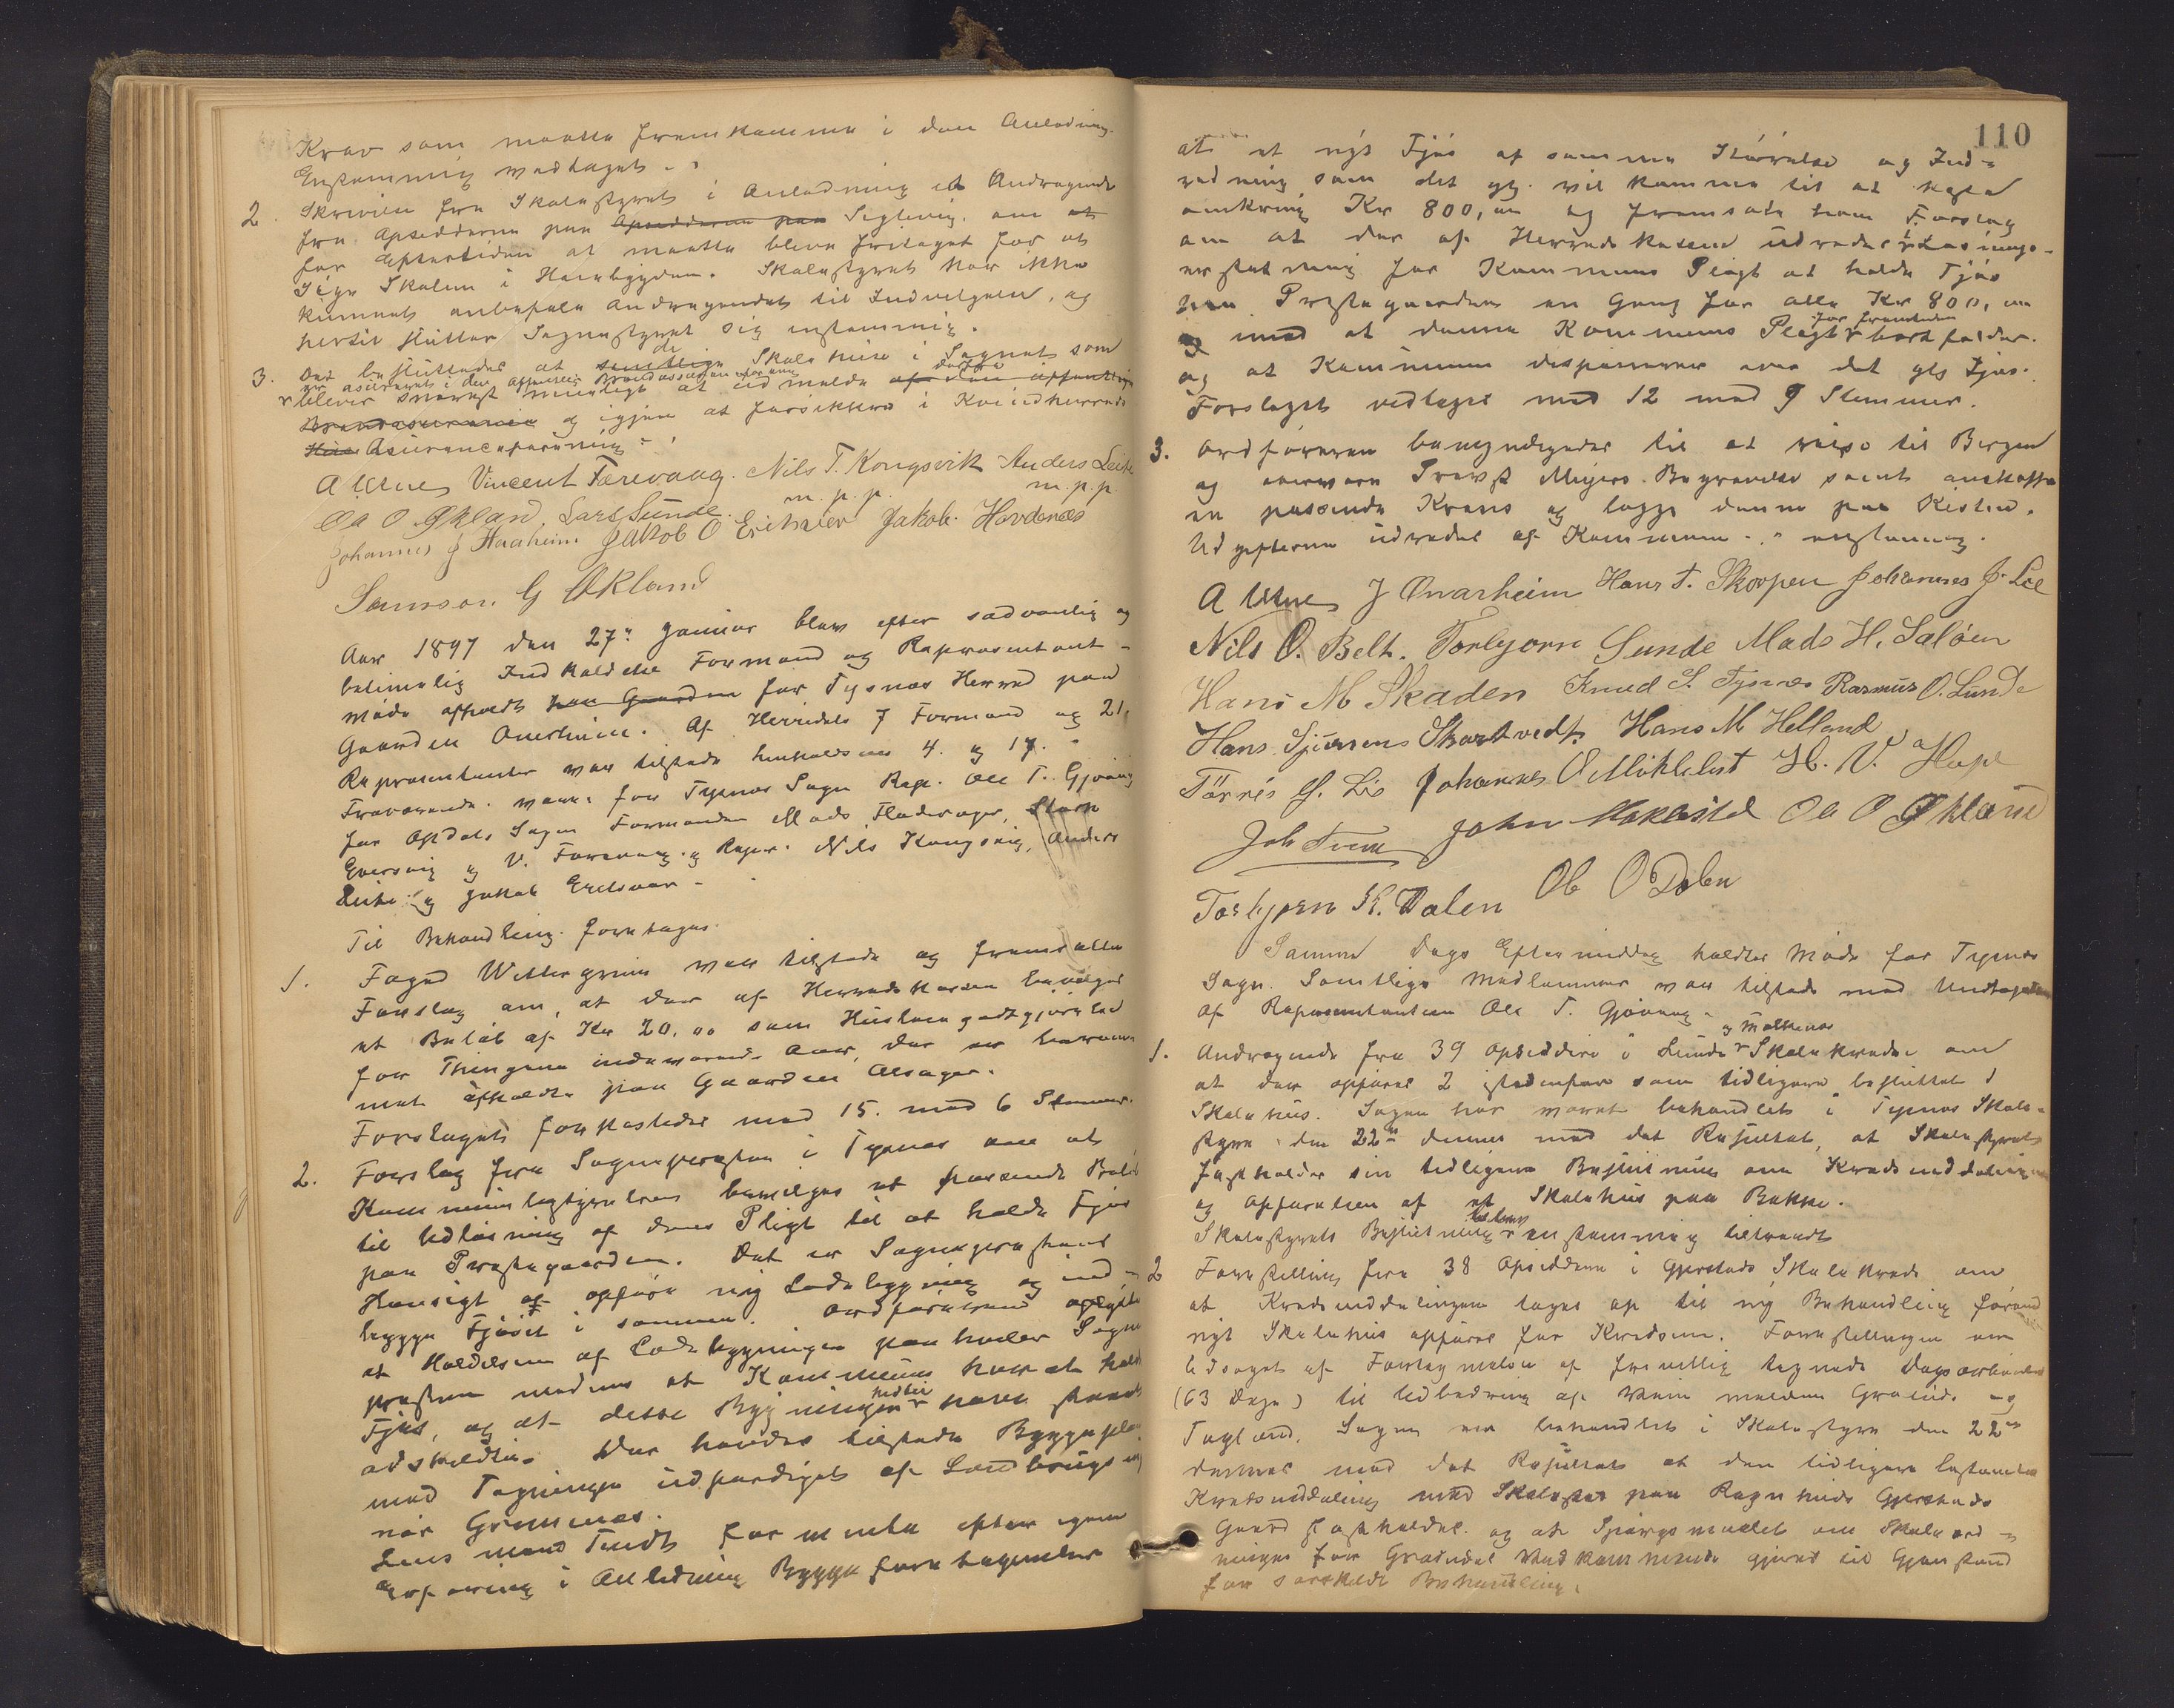 Krav som maatte fremkomme i den Anledning.
Enstemmig vedtaget.
2. Skrivelse fra Skolestyret i Anledning et Andragende
fra Opsidderne paa Opsidderne paa Siglevig. om at
for Eftertiden at maatte blive fritaget for at
søge Skolen i Heiebygden. Skolestyret har ikke
kunnet anbefale Andragendet til Indvilgelse, og
hertil slutter Sognestyret sig enstemmig.
3. Det besluttedes at samtlige de Skolehuse i Sognet som
er asureret i den offentlige Brandassuranceforening
blever snarest mueligt at udmelde af den offentlige
Brandasurance og igjen at forsikkres i Kvindherreds
Asuranceforening.
A Uttne Vincent Færevaag. Nils T. Kongsvik Anders Leite
m.p.p. m.p.p.
Ola O Økland, Lars Sunde.
Johannes J Haaheim Jakob O Eichsver Jakob Hovdenæs
Samson G Økland
Aar 1897 den 27de Januar blev efter sædvanlig og
betimelig Indkaldelse Formand og Repræsentant-
møde afholdt paa Gaarden for Tysnæs Herred paa
Gaarden Onerheim. Af Herredets 7 Formænd og 21
Repræsentanter var tilstede henholdsvis 4. og 17.
Fraværende. være: for Tysnæs Sogn Rep. Ole T. Gjøvaag
for Opdals Sogn Formændene Mads Fladerager, Størk
Eversvig og V. Forevaag. og Repr. Nils Kongsvig, Anders
Leite og Jakob Eretsver
Til Behandling foretages.
1. Foged Wettergren var tilstede og fremsatte
Forslag om, at der af Herredskassen bevilges
et Beløb af Kr 20,00 som Husleiegodtgjørelse
for Thingene indeværende Aar, der er berammet
afholdt paa Gaarden Alsager.
Forslaget forkastedes med 15. mod 6 Stemmer.
2. Forslag fra Sognepresten i Tysnæs om at
Kommunebestyrelsen bevilges et passende Beløb
til Udløsning af dens Pligt til at holde Fjøs
paa Præstegaarden. Det er Sogneprestens
Hensigt at opføre ny Ladebygning og ind-
bygge Fjøset i sammen. Ordføreren oplyste
at Holdelsen af Ladebygningen paahviler Sogne-
presten medens at Kommunen har at holde
Fjøs, og at disse Bygninger hidtil have staaet
adskildte. Der havdes tilstede Byggeplan
med Tegninger udfærdiget af Landbrugsinge-
niør Grimnæs.
Lensmand Tveit formente efter egen
Erfaring i Anledning Byggeforetagender
110
at et nyt Fjøs af samme Størrelse og Ind-
redning som det gl. vil komme til at koste
omkring Kr 800,00 og fremsatte han Forslag
om at der af Herredskassen udredes i Løsnings-
erstatning for Kommunens Pligt at holde Fjøs
paa Præstegaarden en Gang for alle Kr 800,00
og mod at denne Kommunens Pligt for fremtiden bortfalder.
og at Kommunen disponerer over det gl. Fjøs.
Forslaget vedtaget med 12 mod 9 Stemmer.
3. Ordføreren bemyndigedes til at reise til Bergen
og overvære Provst Meyers Begravelse samt anskaffe
en passende Krans og lægge denne paa Kisten.
Udgifterne udredes af Kommunen. enstemmig.
A Uttne J Onarheim Hans T. Skorpen Johannes J. Loe
Nils O. Belt. Torbjørn Sunde Mads H. Saløen
Hans M Skaden Knud S. Tysnes Rasmus O. Lunde
Hans Sjursens Skartvedt. Hans M Helland
Tørris G. Lio Johannes O Mehlhest H. V. Hope
Joh Tveit John Mokastel Ola O Økland
Torbjørn K. Dalen Ole O Dalen
Samme Dags Eftermiddag holdtes Møde for Tysnes
Sogn. Samtlige Medlemmer var tilstede med Undtagelse
af Repræsentanten Ole T. Gjøvaag
1. Andragende fra 39 Opsiddere i Lunde og Malkenes Skolekreds om
at der opføres 2 istedenfor som tidligere besluttet 1
Skolehus. Sagen har været behandlet i Tysnes Skole-
styre den 22de dennes med det Resultat, at Skolestyret
fastholder sin tidligere Beslutning om Kredsinddelingen
og Opførelsen af et Skolehus paa Bakke.
Skolestyrets Beslutning blev enstemmig tiltraadt
2 Forestilling fra 38 Opsiddere i Gjerstads Skolekreds om
at Kredsinddelingen tages op til ny Behandling førend
nyt Skolehus opføres for Kredsen. Forestillingen var
ledsaget af Fortegnelse af frivillig tegnede Dagsarbeider
(63 Dage) til Udbedring af Veien mellem Grøind. og
Tegland. Sagen var behandlet i Skolestyre den 22de
dennes med det Resultat at den tidligere bestemte
Kredsinddeling med Skolested paa Ragnhilds Gjerstads
Gaard fastholdes. og at Spørgsmaalet om Skoleord-
ningen for Grøindal Vedkommende gjøres til Gjenstand
for særskilt Behandling.